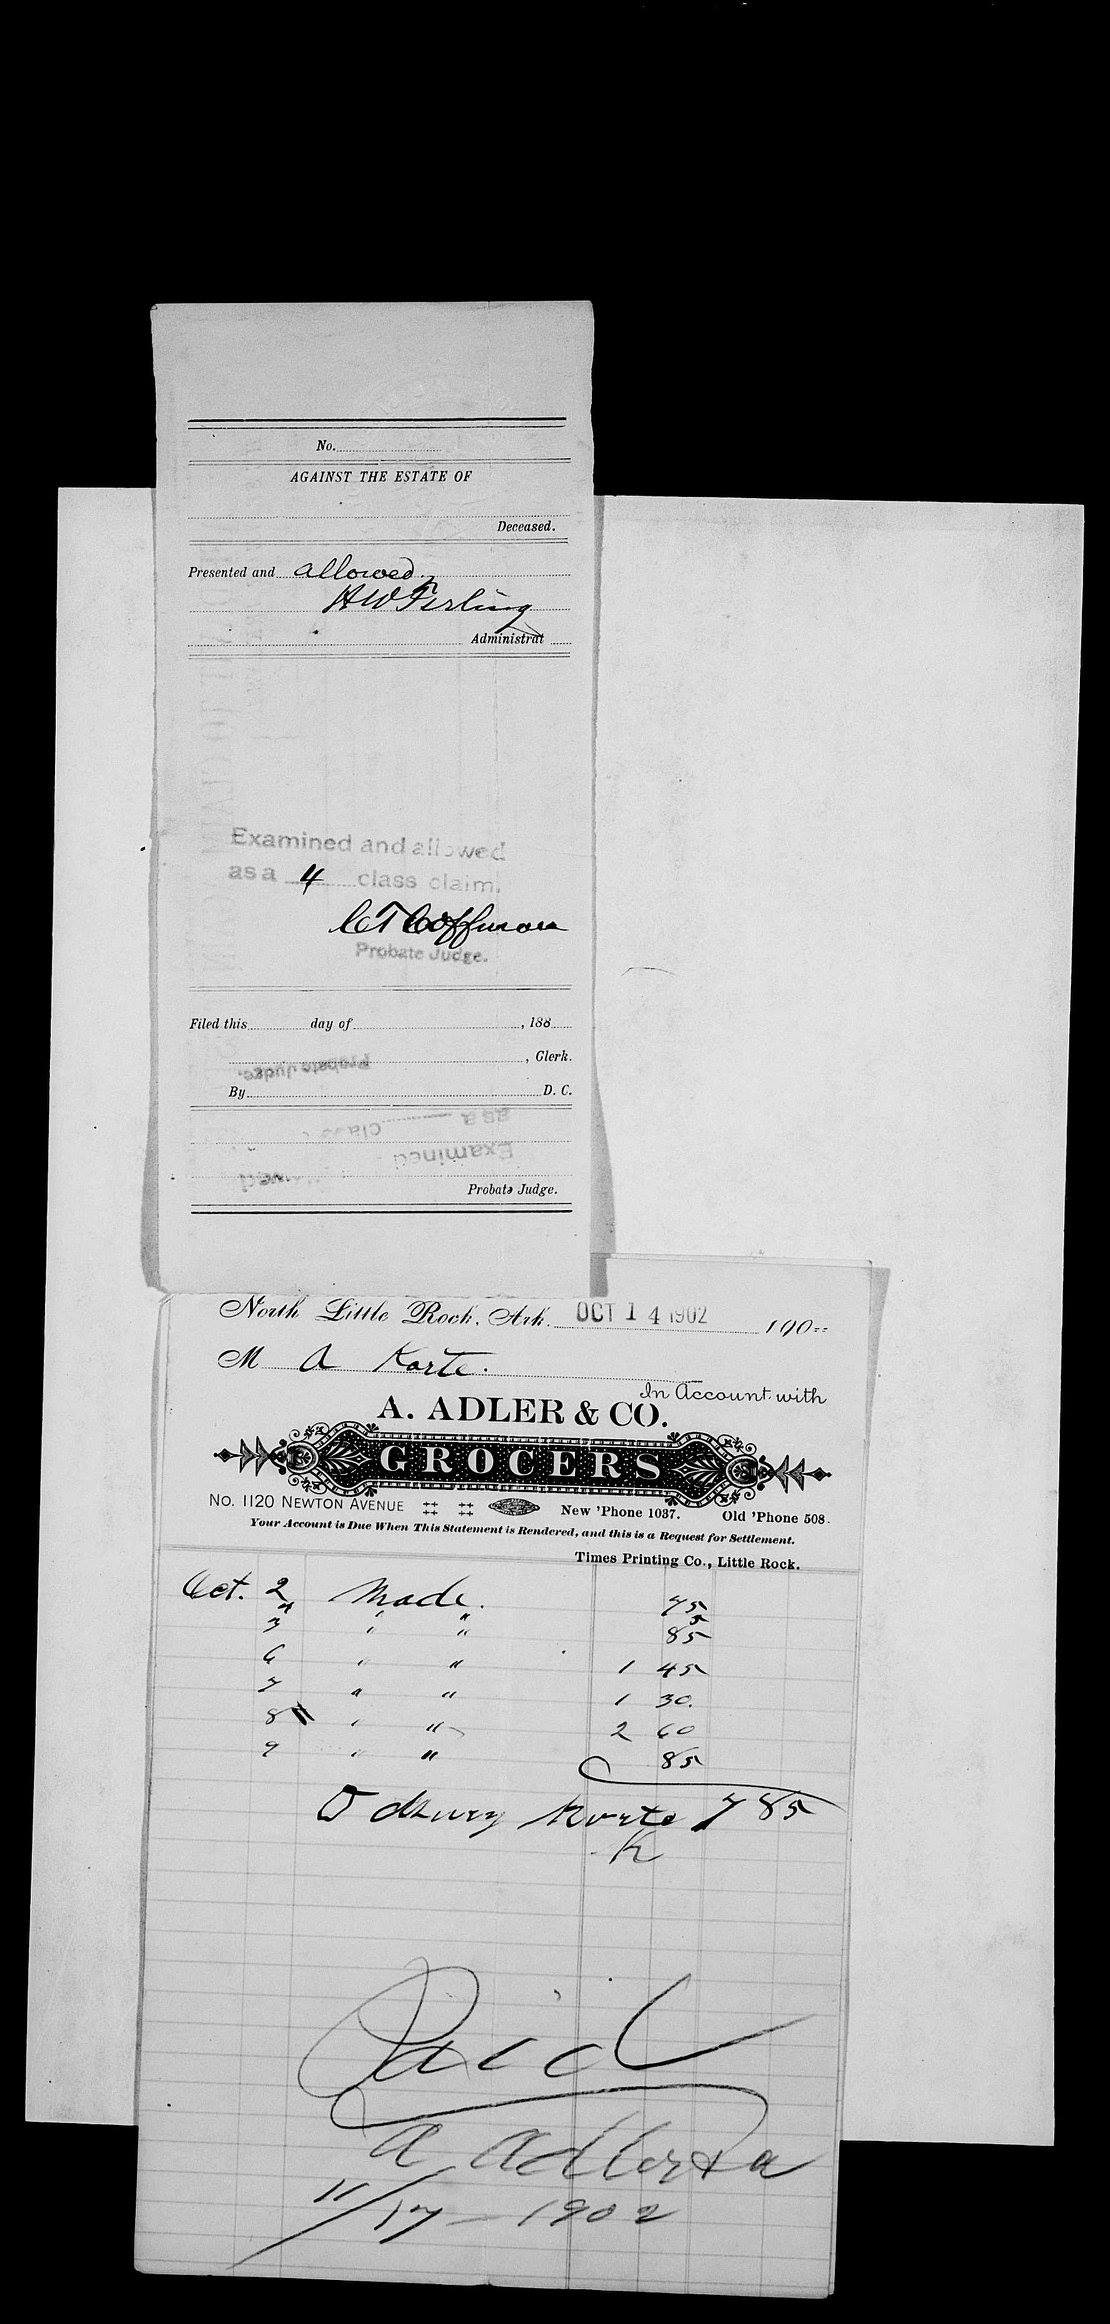 No.
AGAINST THE ESTATE OF
Deceased.
Presented and allowed
Administrat
Examined and allowed
as a 4 class claim.
CT Coffman
Probate Judge.
Filed this day of , 188
, Clerk.
Probate Judge.
By D. C.
as a class
Examined
Probate Judge.
North Little Rock, Ark. OCT 14 1902 190
M A Korte.
In Account with
A. ADLER & CO.
GROCERS
No. 1120 NEWTON AVENUE New 'Phone 1037. Old 'Phone 508.
Your Account is Due When This Statement is Rendered, and this is a Request for Settlement.
Times Printing Co., Little Rock.
Oct. 2 Made. 75
3 " " 85
6 " " 1 45
7 " " 1 30.
8 " " 2 60
9 " " 85
Korte 7 85
K
Paid
A Adler & Co
11/17 - 1902